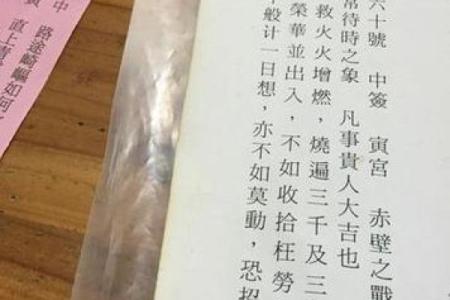 六十號 中簽 寅宮 赤壁之戰
常待時之象 凡事貴人大吉也
救火火增燃，燒遍三千及三
榮華並出入，不如收拾枉勞
般计一日想，亦不如莫動，恐招
中 路途崎嶇如何
直上青